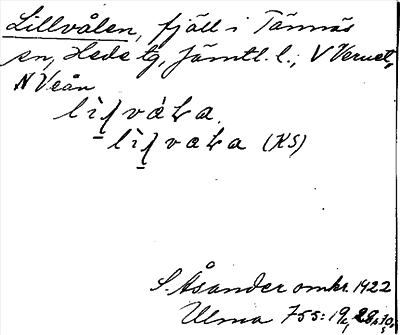 Lillvålen, fjäll i Tännäs
sn, Hede tg, Jämtl. l.; V Vernet,
N Veån
(KS)
S. Åsander omkr. 1922
Ulma 755: 19,